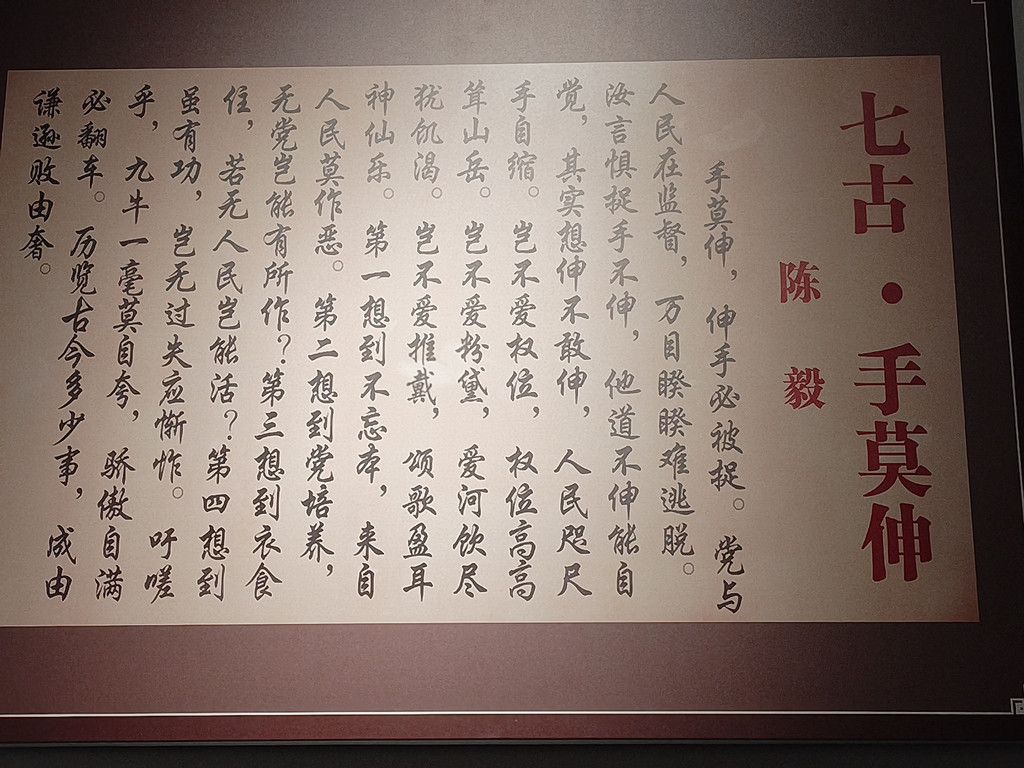 七古·手莫伸
陈毅
手莫伸，伸手必被捉。党与
人民在监督，万目睽睽难逃脱。
汝言惧捉手不伸，他道不伸能自
觉，其实想伸不敢伸，人民咫尺
手自缩。岂不爱权位，权位高高
耸山岳。岂不爱粉黛，爱河饮尽
犹饥渴。岂不爱推戴，颂歌盈耳
神仙乐。第一想到不忘本，来自
人民莫作恶。第二想到党培养，
无党岂能有所作？第三想到衣食
住，若无人民岂能活？第四想到
虽有功，岂无过失应惭怍。吁嗟
乎，九牛一毫莫自夸，骄傲自满
必翻车。历览古今多少事，成由
谦逊败由奢。